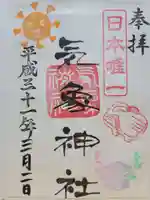 奉拝
日本唯一
気象神社
平成三十一年三月二日